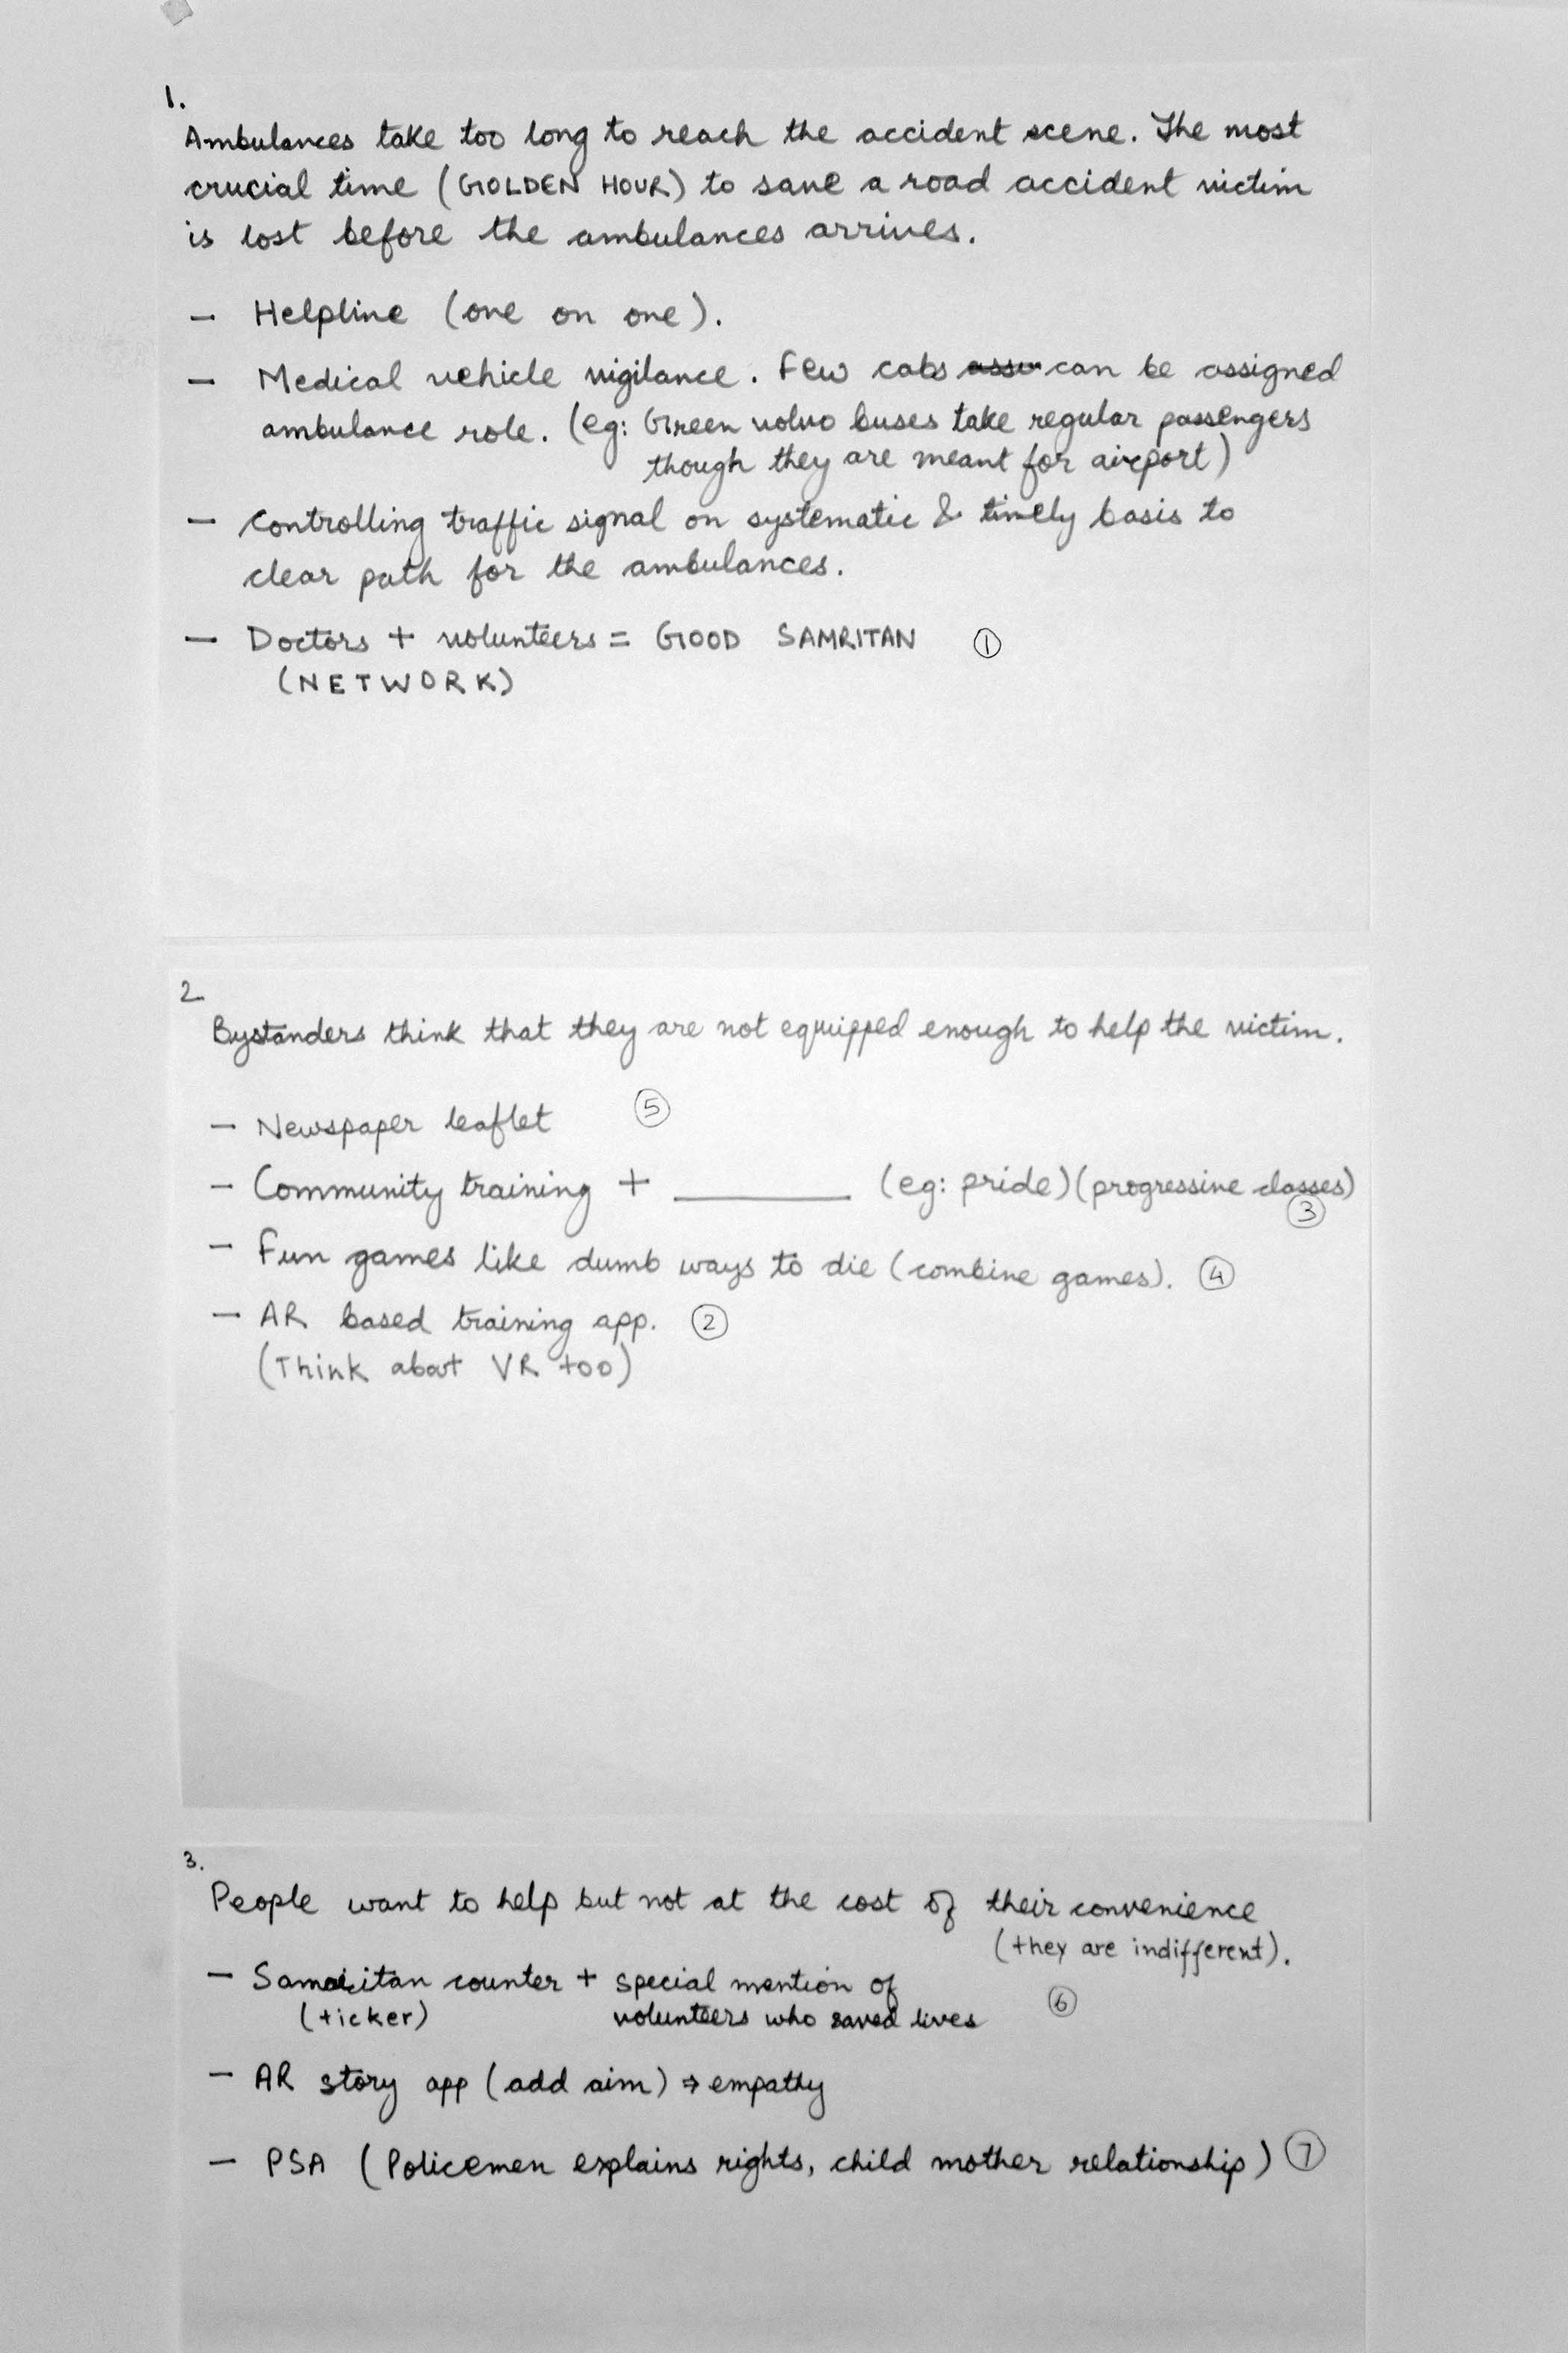 1.
Ambulances take too long to reach the accident scene. The most
crucial time (GOLDEN HOUR) to save a road accident victim
is lost before the ambulances arrives.
- Helpline (one on one).
- Medical vehicle vigilance. Few cabs can be assigned
ambulance role. (eg: Green volvo buses take regular passengers
though they are meant for airport)
- Controlling traffic signal on systematic & timely basis to
clear path for the ambulances.
- Doctors + volunteers = GOOD SAMRITAN ①
(NETWORK)
2
Bystanders think that they are not equipped enough to help the victim.
- Newspaper leaflet ⑤
- Community training + ________ (eg: pride) (progressive classes)
③
- Fun games like dumb ways to die (combine games). ④
- AR based training app. ②
(Think about VR too)
3.
People want to help but not at the cost of their convenience
(they are indifferent).
- Samaritan counter + special mention of
(ticker) volunteers who saved lives ⑥
- AR story app (add aim) ⇒ empathy
- PSA (Policemen explains rights, child mother relationship) ⑦